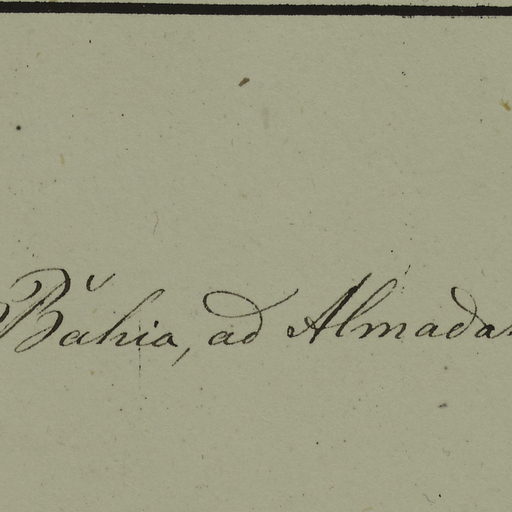 Băhia, ad Almada